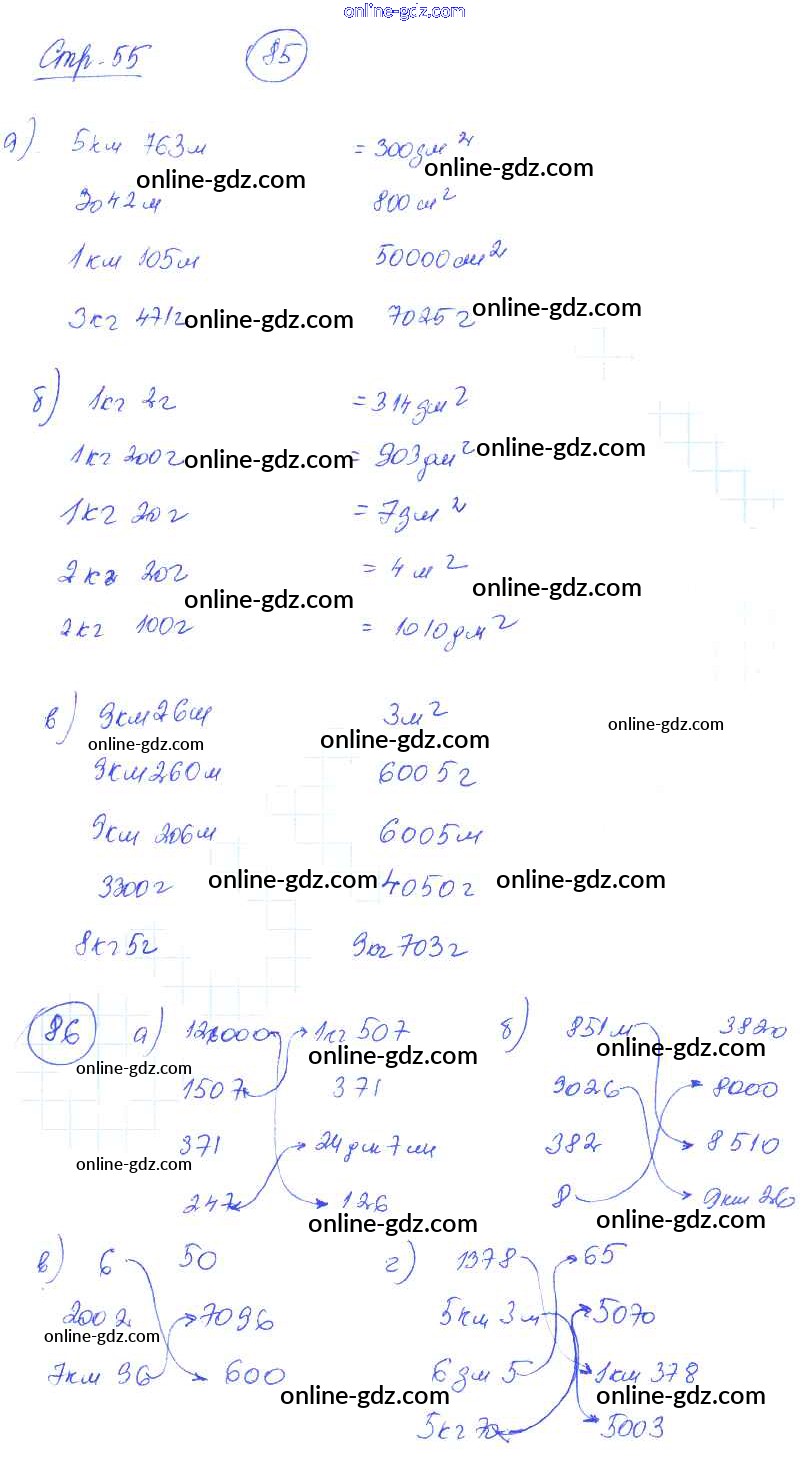 online-gdz.com
Стр. 55 85
а) 5км 763м = 300дм²
online-gdz.com online-gdz.com
3042м 800см²
1км 105м 50000см²
3кг 471г online-gdz.com 7025г online-gdz.com
б) 1кг 2г = 314дм²
1кг 200г online-gdz.com = 903дм² online-gdz.com
1кг 20г = 7дм²
2кг 20г = 4м²
online-gdz.com online-gdz.com
2кг 100г = 1010дм²
в) 9км 26м 3м²
online-gdz.com online-gdz.com online-gdz.com
9км 260м 6005г
9км 206м 6005м
3200г online-gdz.com 4050г online-gdz.com
8кг 5г 9кг 703г
86 а) 126000 1кг 507 б) 851м 3820
online-gdz.com online-gdz.com online-gdz.com
1507 371 9026 8000
371 24дм 7см 382 8510
online-gdz.com
247 126 8 9км 26
online-gdz.com online-gdz.com
в) 6 50 г) 1378 65
2002 7096 5км 3м 5070
online-gdz.com
7км 96 600 6дм 5 1км 378
online-gdz.com online-gdz.com
5кг 70 5003